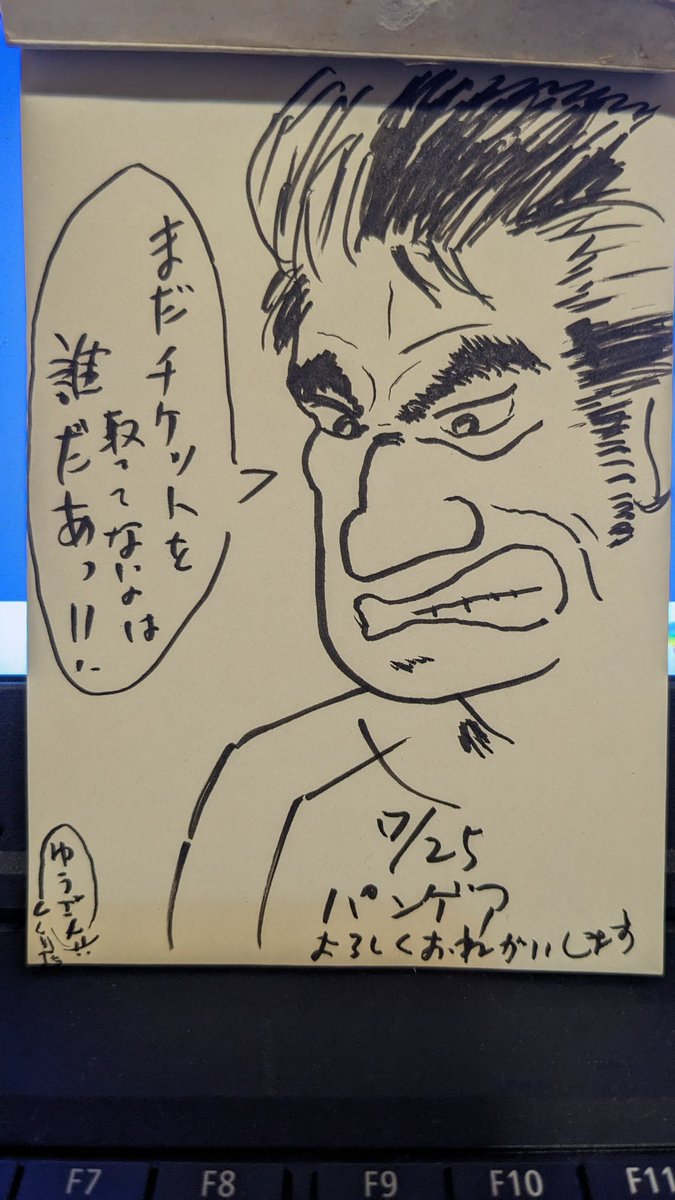 まだチケットを
取ってないのは
誰だあっ!!
7/25
パンゲア
よろしくおねがいします
F7
F8
F9
F10
F11